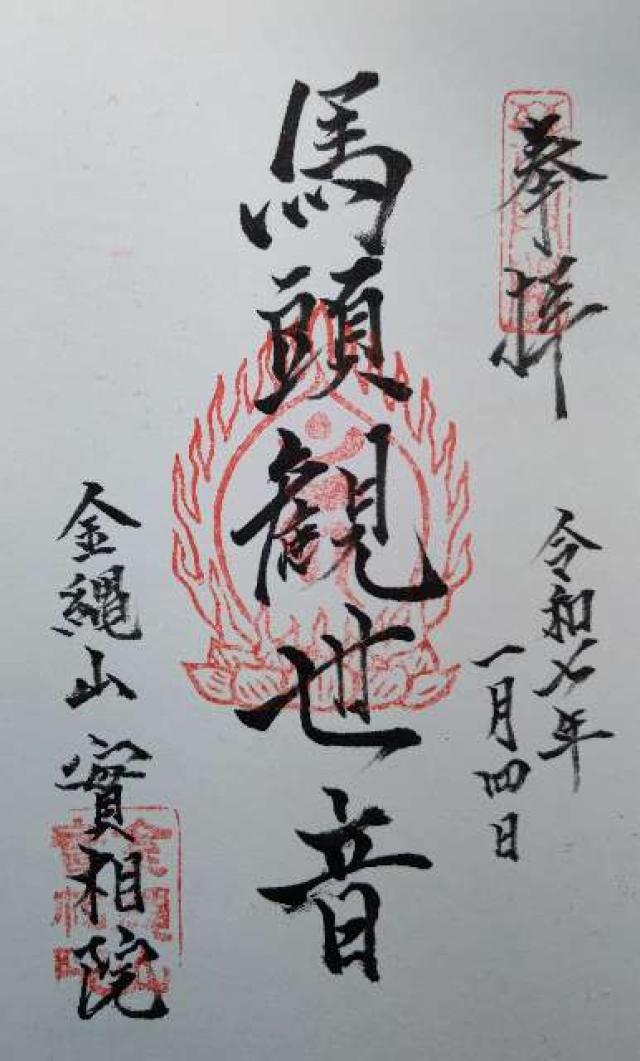 奉拝
令和七年
一月四日
馬頭観世音
金縄山
實相院